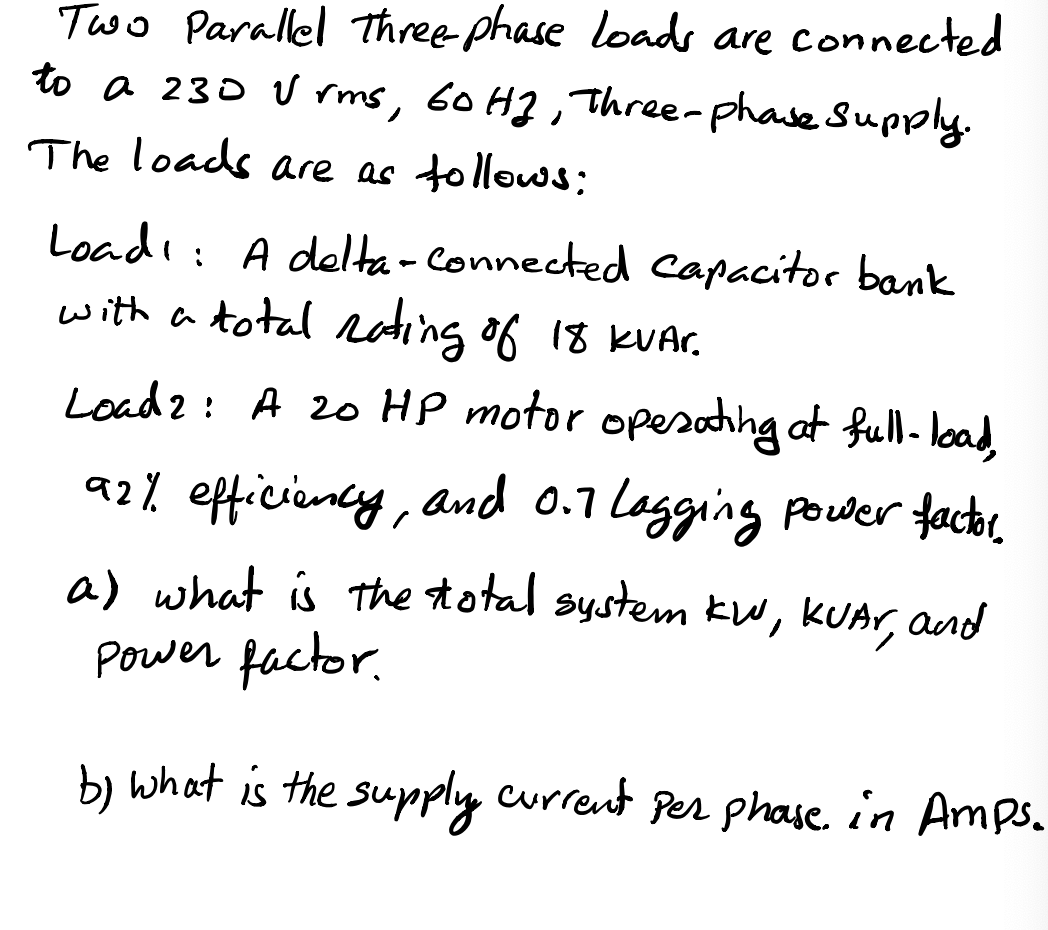 Two Parallel Three-phase loads are connected
to a 230 V rms, 60 Hz, Three-phase Supply.
The loads are as follows:
Load1: A delta-connected capacitor bank
with a total rating of 18 KVAr.
Load2: A 20 HP motor operating at full-load,
92% efficiency, and 0.7 lagging power factor.
a) what is the total system kW, KVAr, and
power factor.
b) what is the supply current per phase. in Amps.